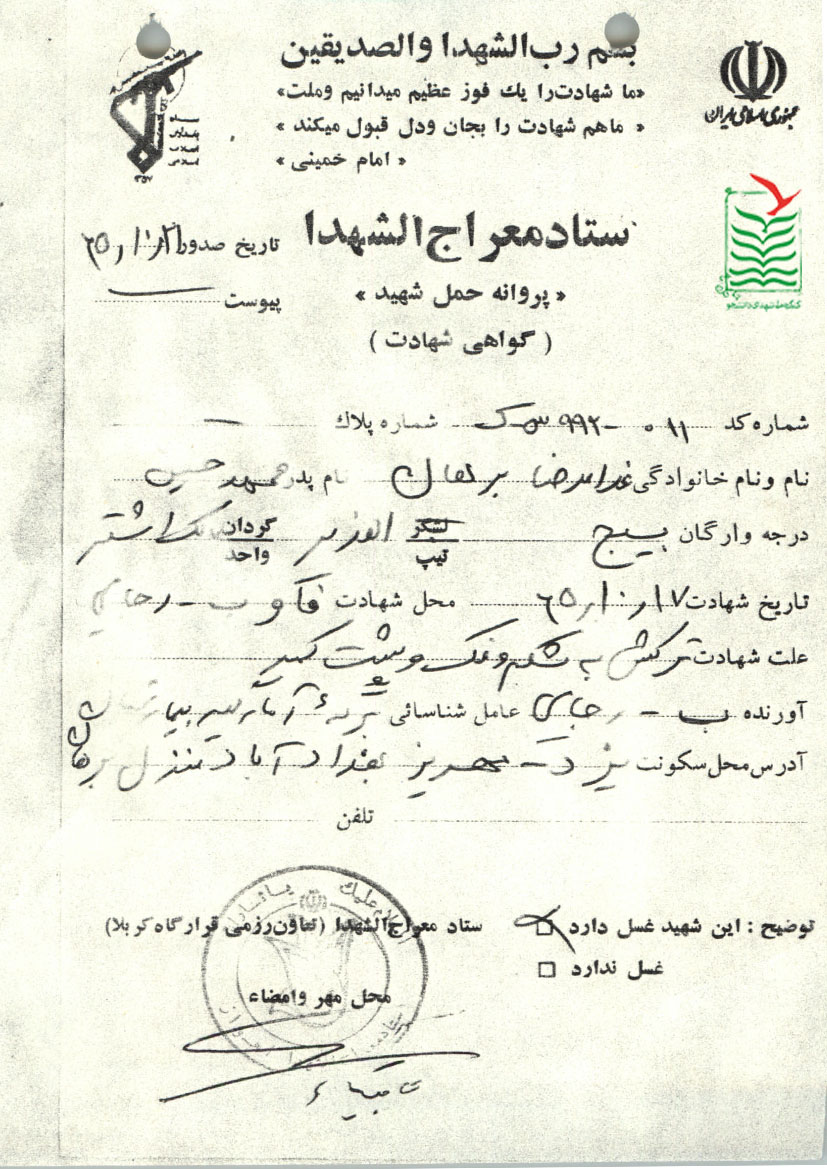 بسم رب الشهدا والصدیقین
«ما شهادت را یك فوز عظیم میدانیم وملت»
« ماهم شهادت را بجان ودل قبول میکند »
« امام خمینی »
جمهوری اسلامی ایران
سپاه پاسداران انقلاب اسلامی
۱۳۵۷
ستاد معراج الشهدا
تاریخ صدور ۶۵/۱۰/۲۱
« پروانه حمل شهید »
پیوست
( گواهی شهادت )
شماره کد ۰۱۱ - ۹۹۲ شماره پلاك
نام ونام خانوادگی غلامرضا برهان نام پدر محمد حسین
درجه وارگان بسیج لشگر تیپ الغدیر گردان واحد مالک اشتر
تاریخ شهادت ۶۵/۱۰/۱۷ محل شهادت
علت شهادت ترکش به شکم و
آورنده ب - رجایی عامل شناسائی
آدرس محل سکونت یزد - مهریز بغدادآباد منزل برهان
تلفن
توضیح : این شهید غسل دارد
غسل ندارد
ستاد معراج الشهدا (تعاون رزمی قرارگاه کربلا)
محل مهر وامضاء